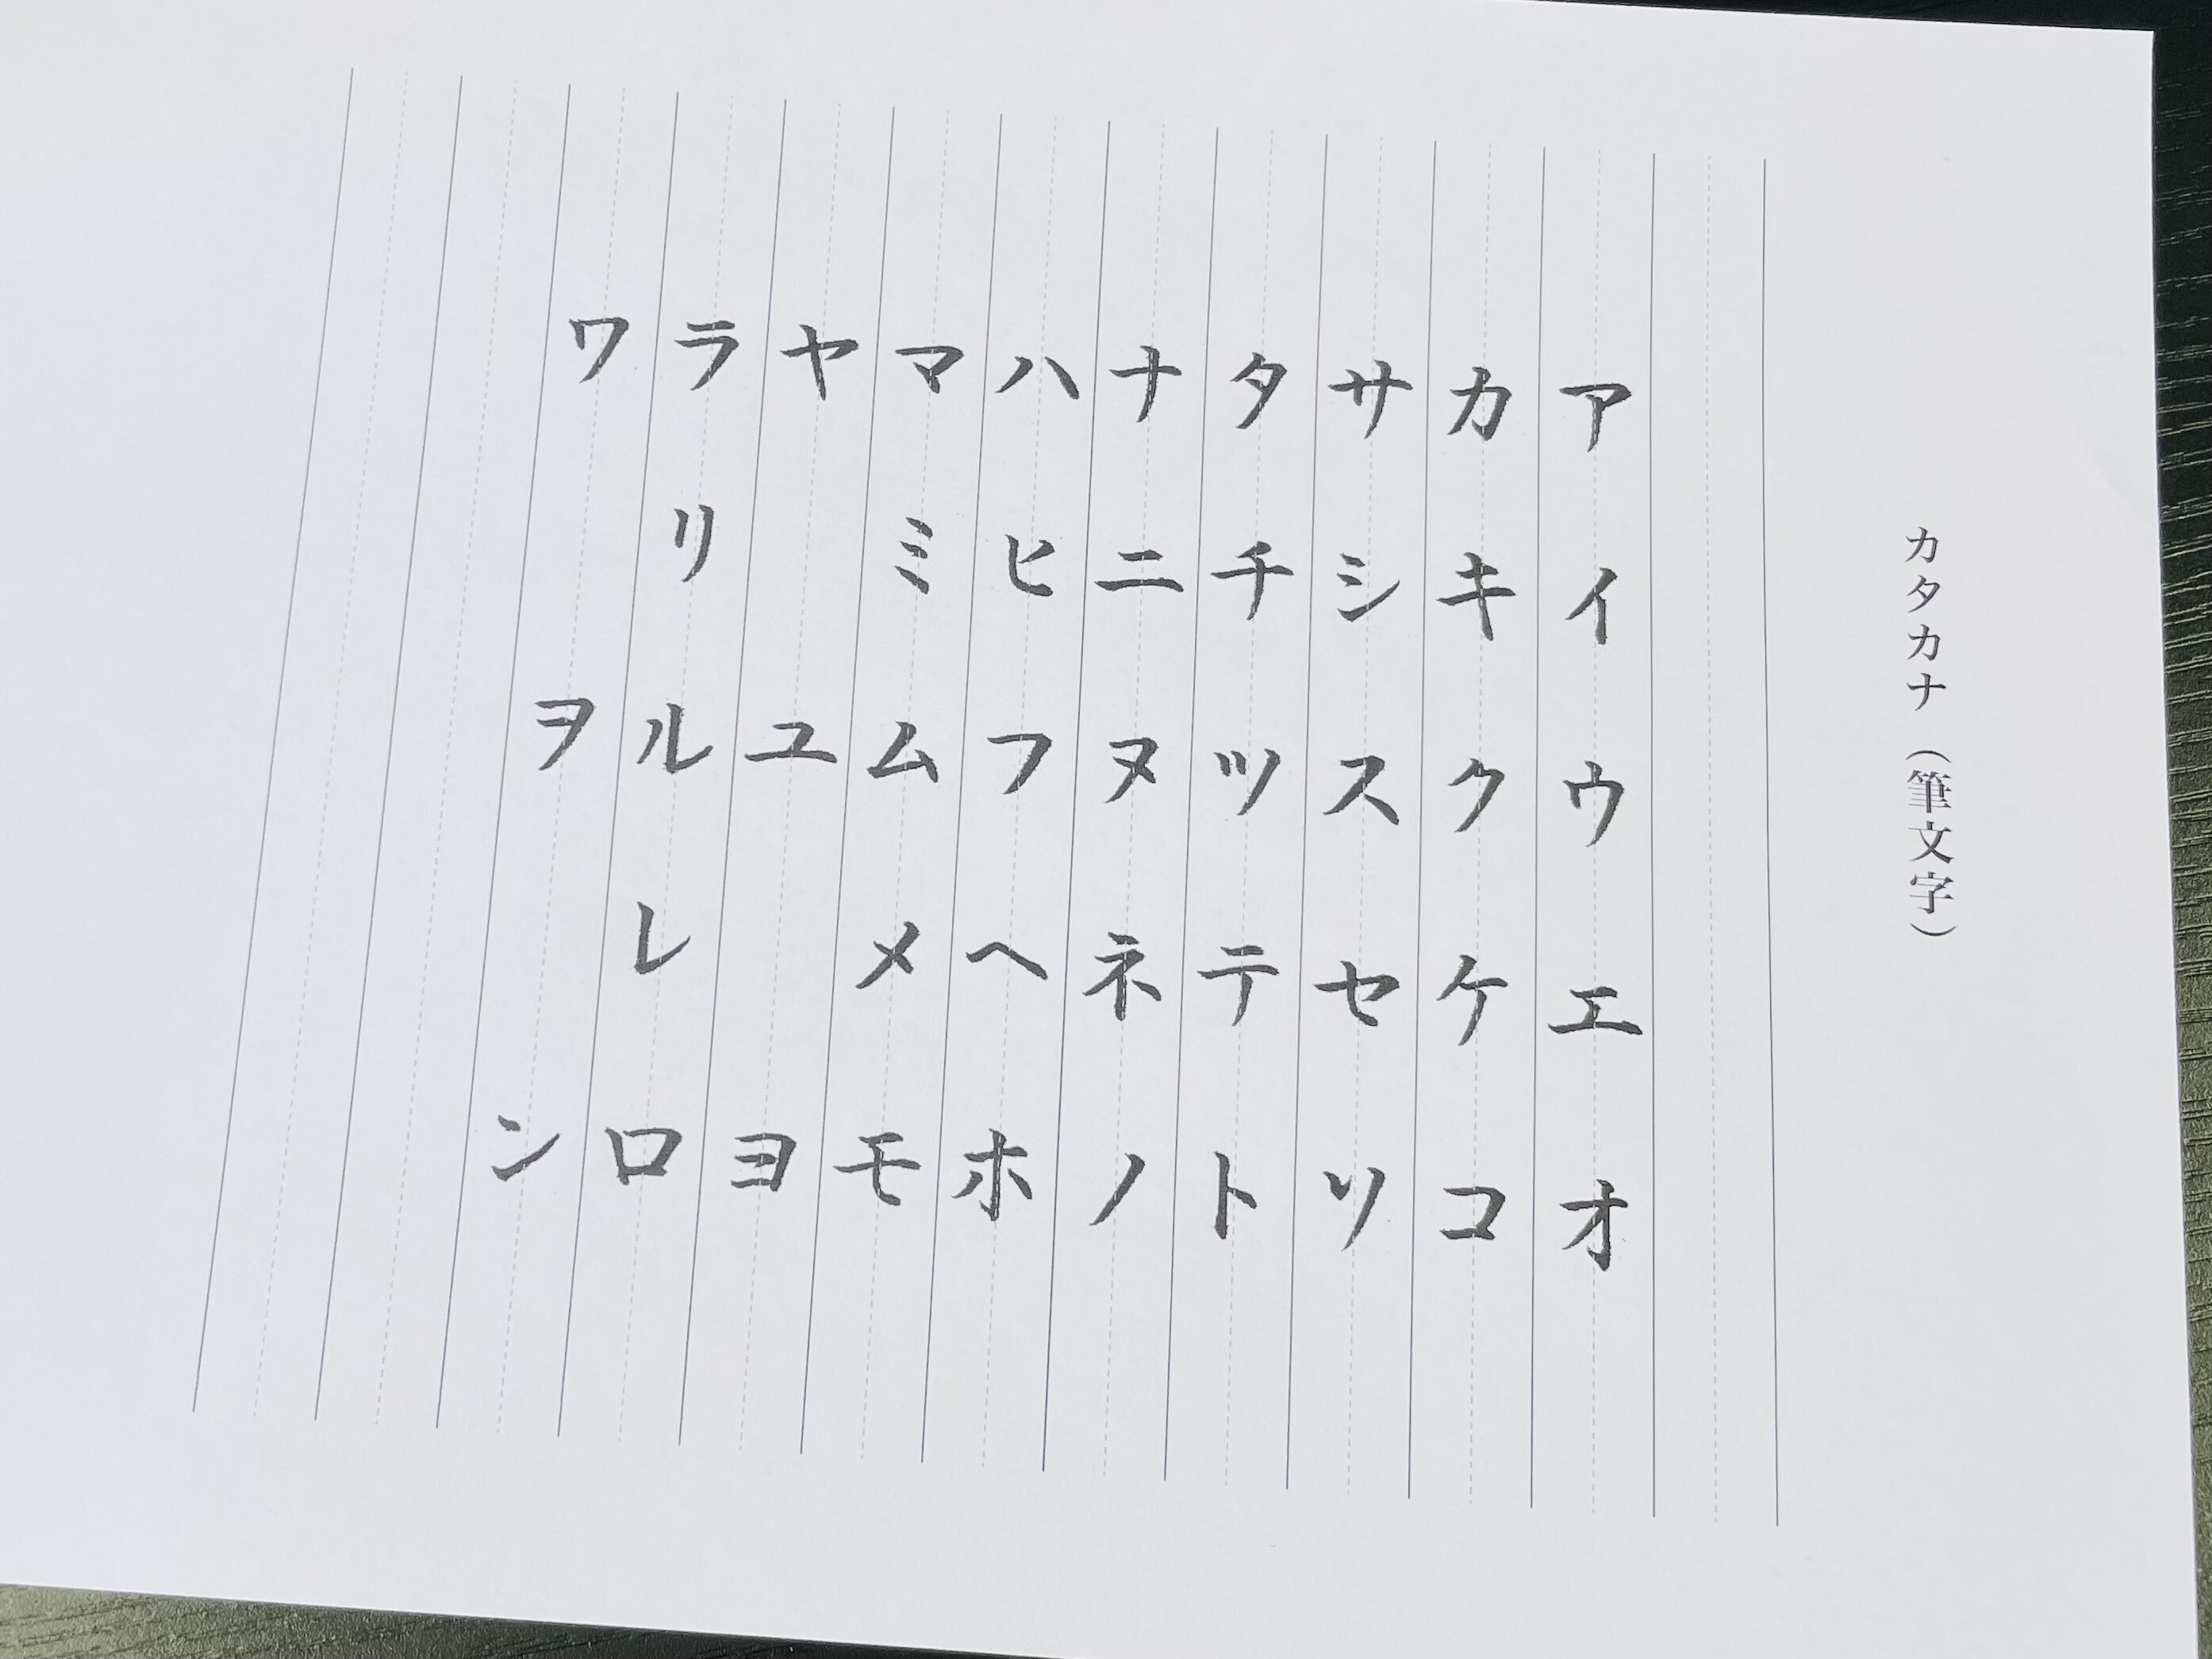 カタカナ（筆文字）
アイウエオ
カキクケコ
サシスセソ
タチツテト
ナニヌネノ
ハヒフヘホ
マミムメモ
ヤユヨ
ラリルレロ
ワヲン